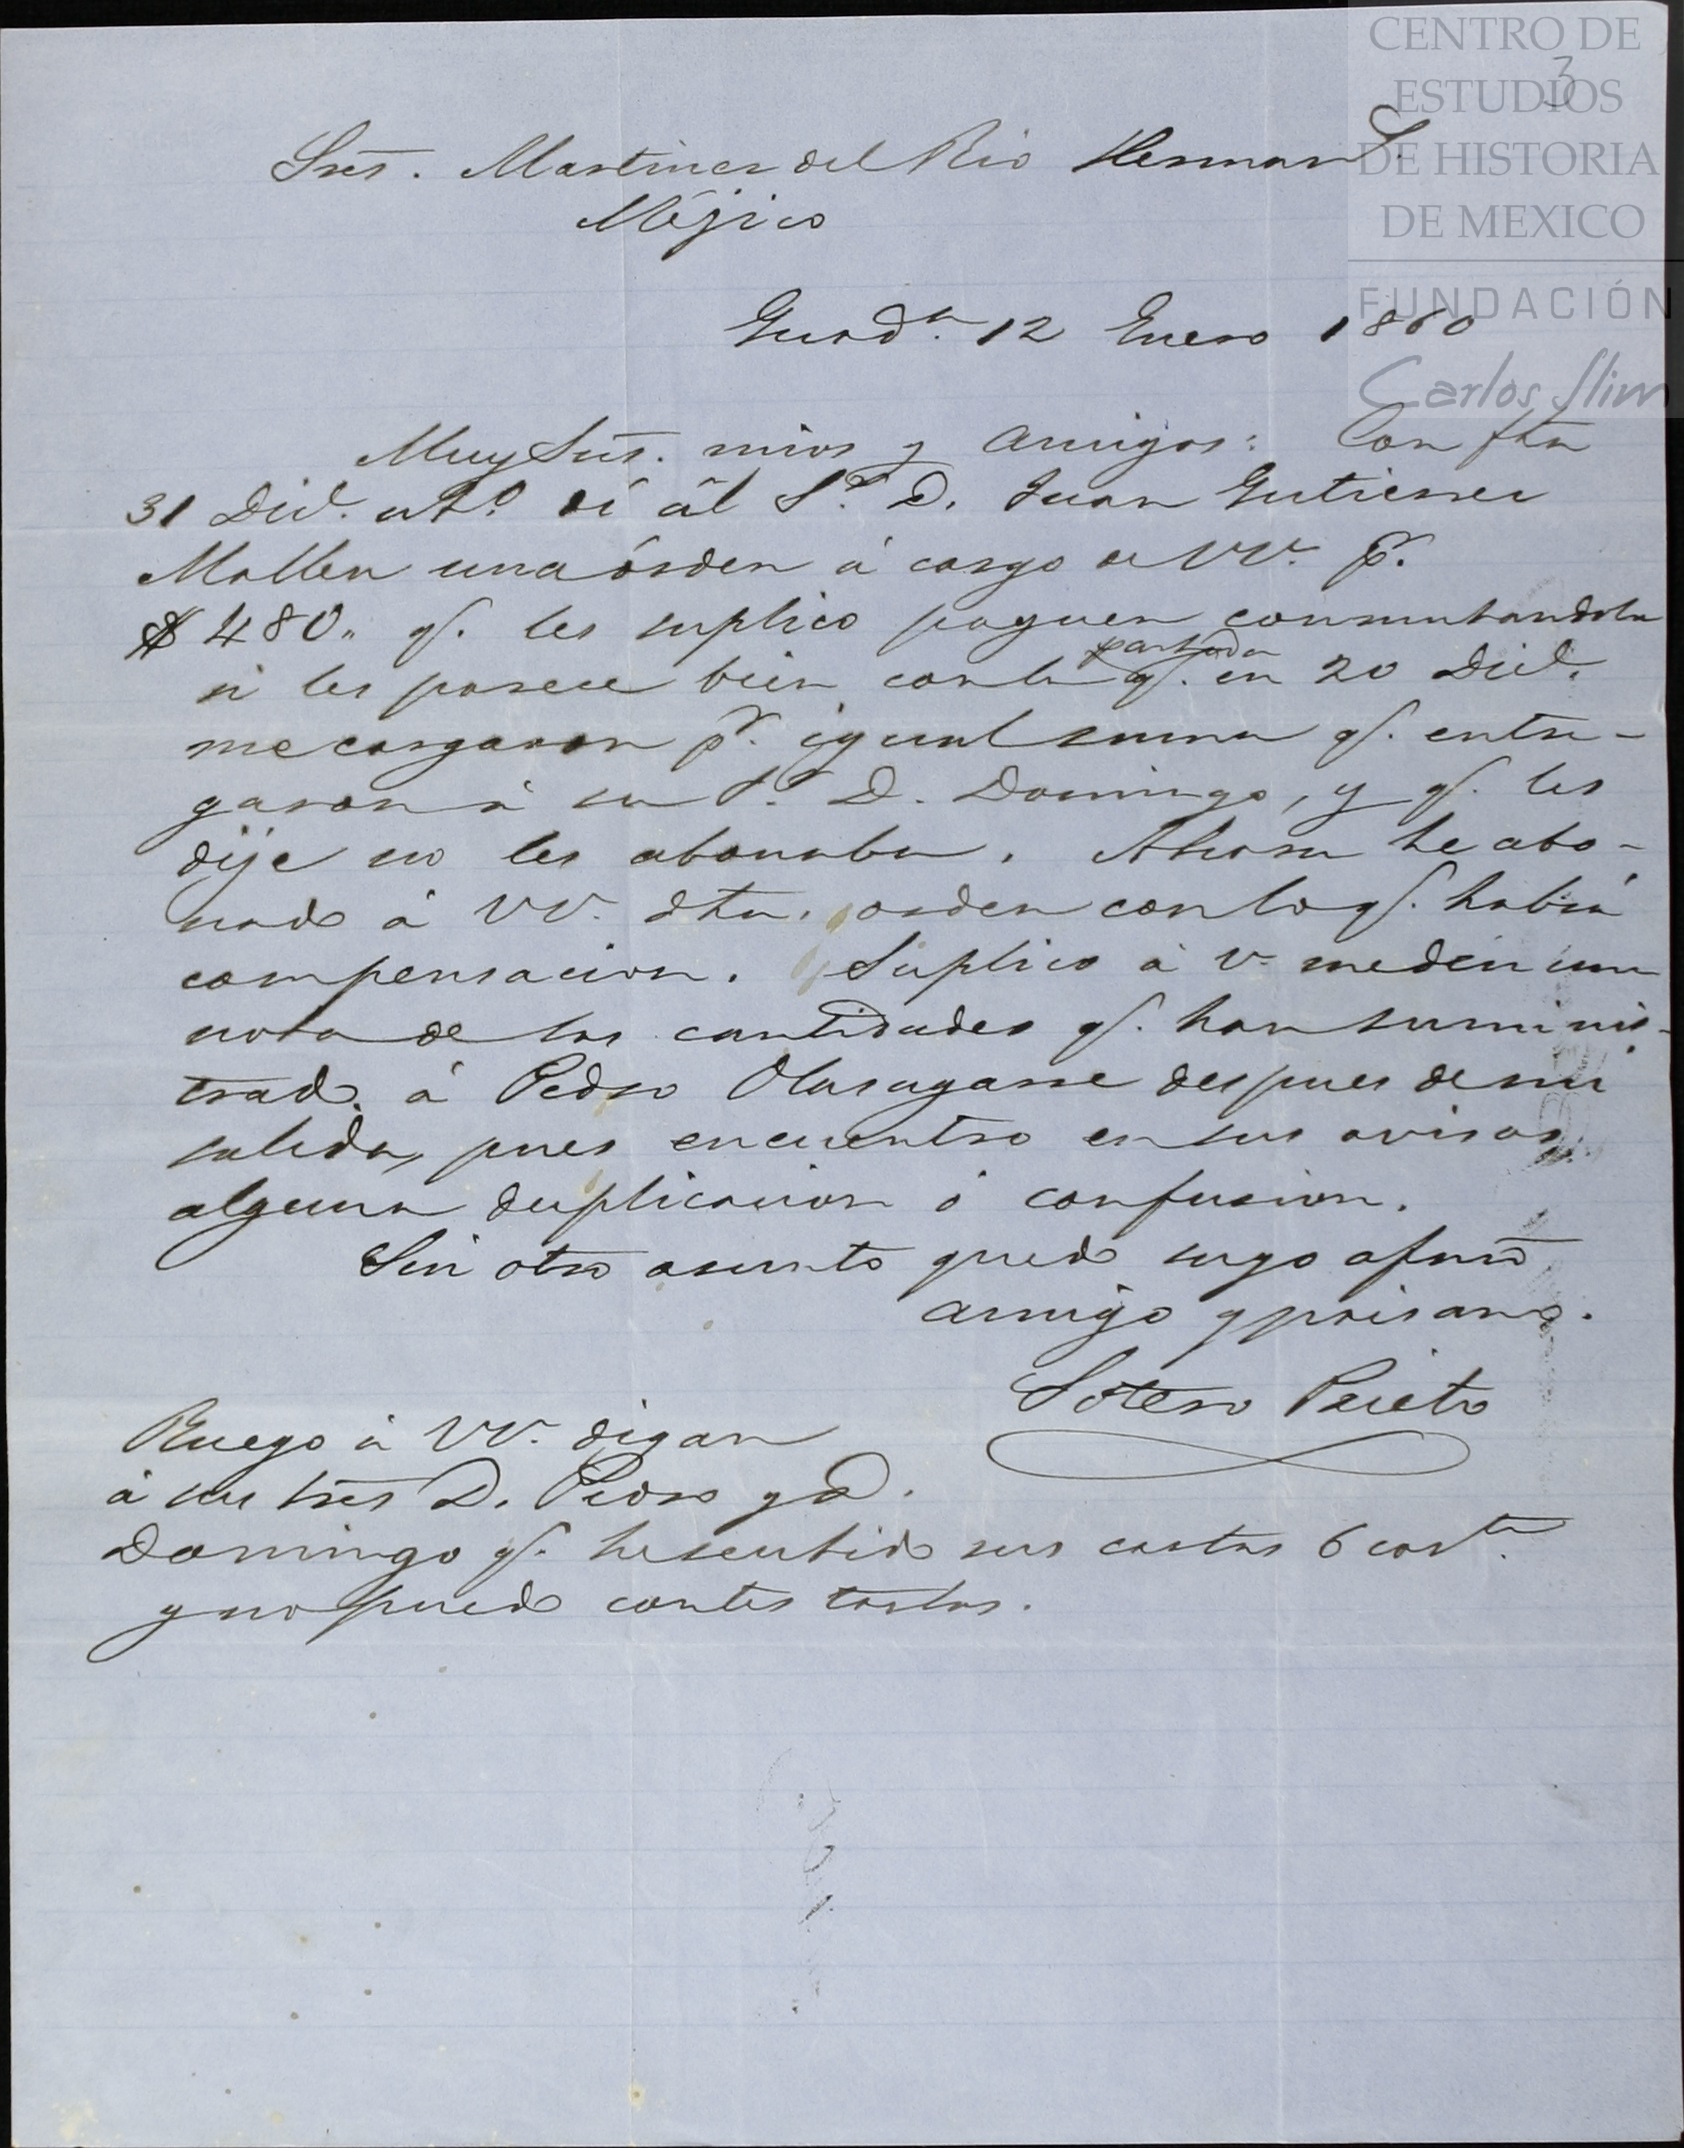 CENTRO DE
ESTUDIOS
DE HISTORIA
DE MEXICO
FUNDACIÓN
Carlos Slim
3
Sres. Martinez del Rio Herman.s
Méjico
Guad.a 12 Enero 1860
Muy Sres. mios y amigos: Con fha
31 Dic.e ult.o dí al S.r D. Juan Gutierrez
Mallen una órden á cargo de VV. p.r
$480,, q.e les suplico paguen conmutandola
si les parece bien con la partida q.e en 20 Dic.e
me cargaron p.r igual suma q.e entre-
garon á su S.r D. Domingo, y q.e les
dije no les abonaba. Ahora he abo-
nado á VV. dha. orden con lo q.e habrá
compensacion. Suplico á V. me dén una
nota de las cantidades q.e han suminis-
trado á Pedro Olasagarre despues de mi
salida, pues encuentro en sus avisos
alguna duplicacion ó confusion.
Sin otro asunto quedo suyo afmo
amigo y paisano.
Sotero Prieto
Ruego á VV. digan
á sus Sres D. Pedro y D.
Domingo q.e he recibido sus cartas
y no puedo contestarlas.